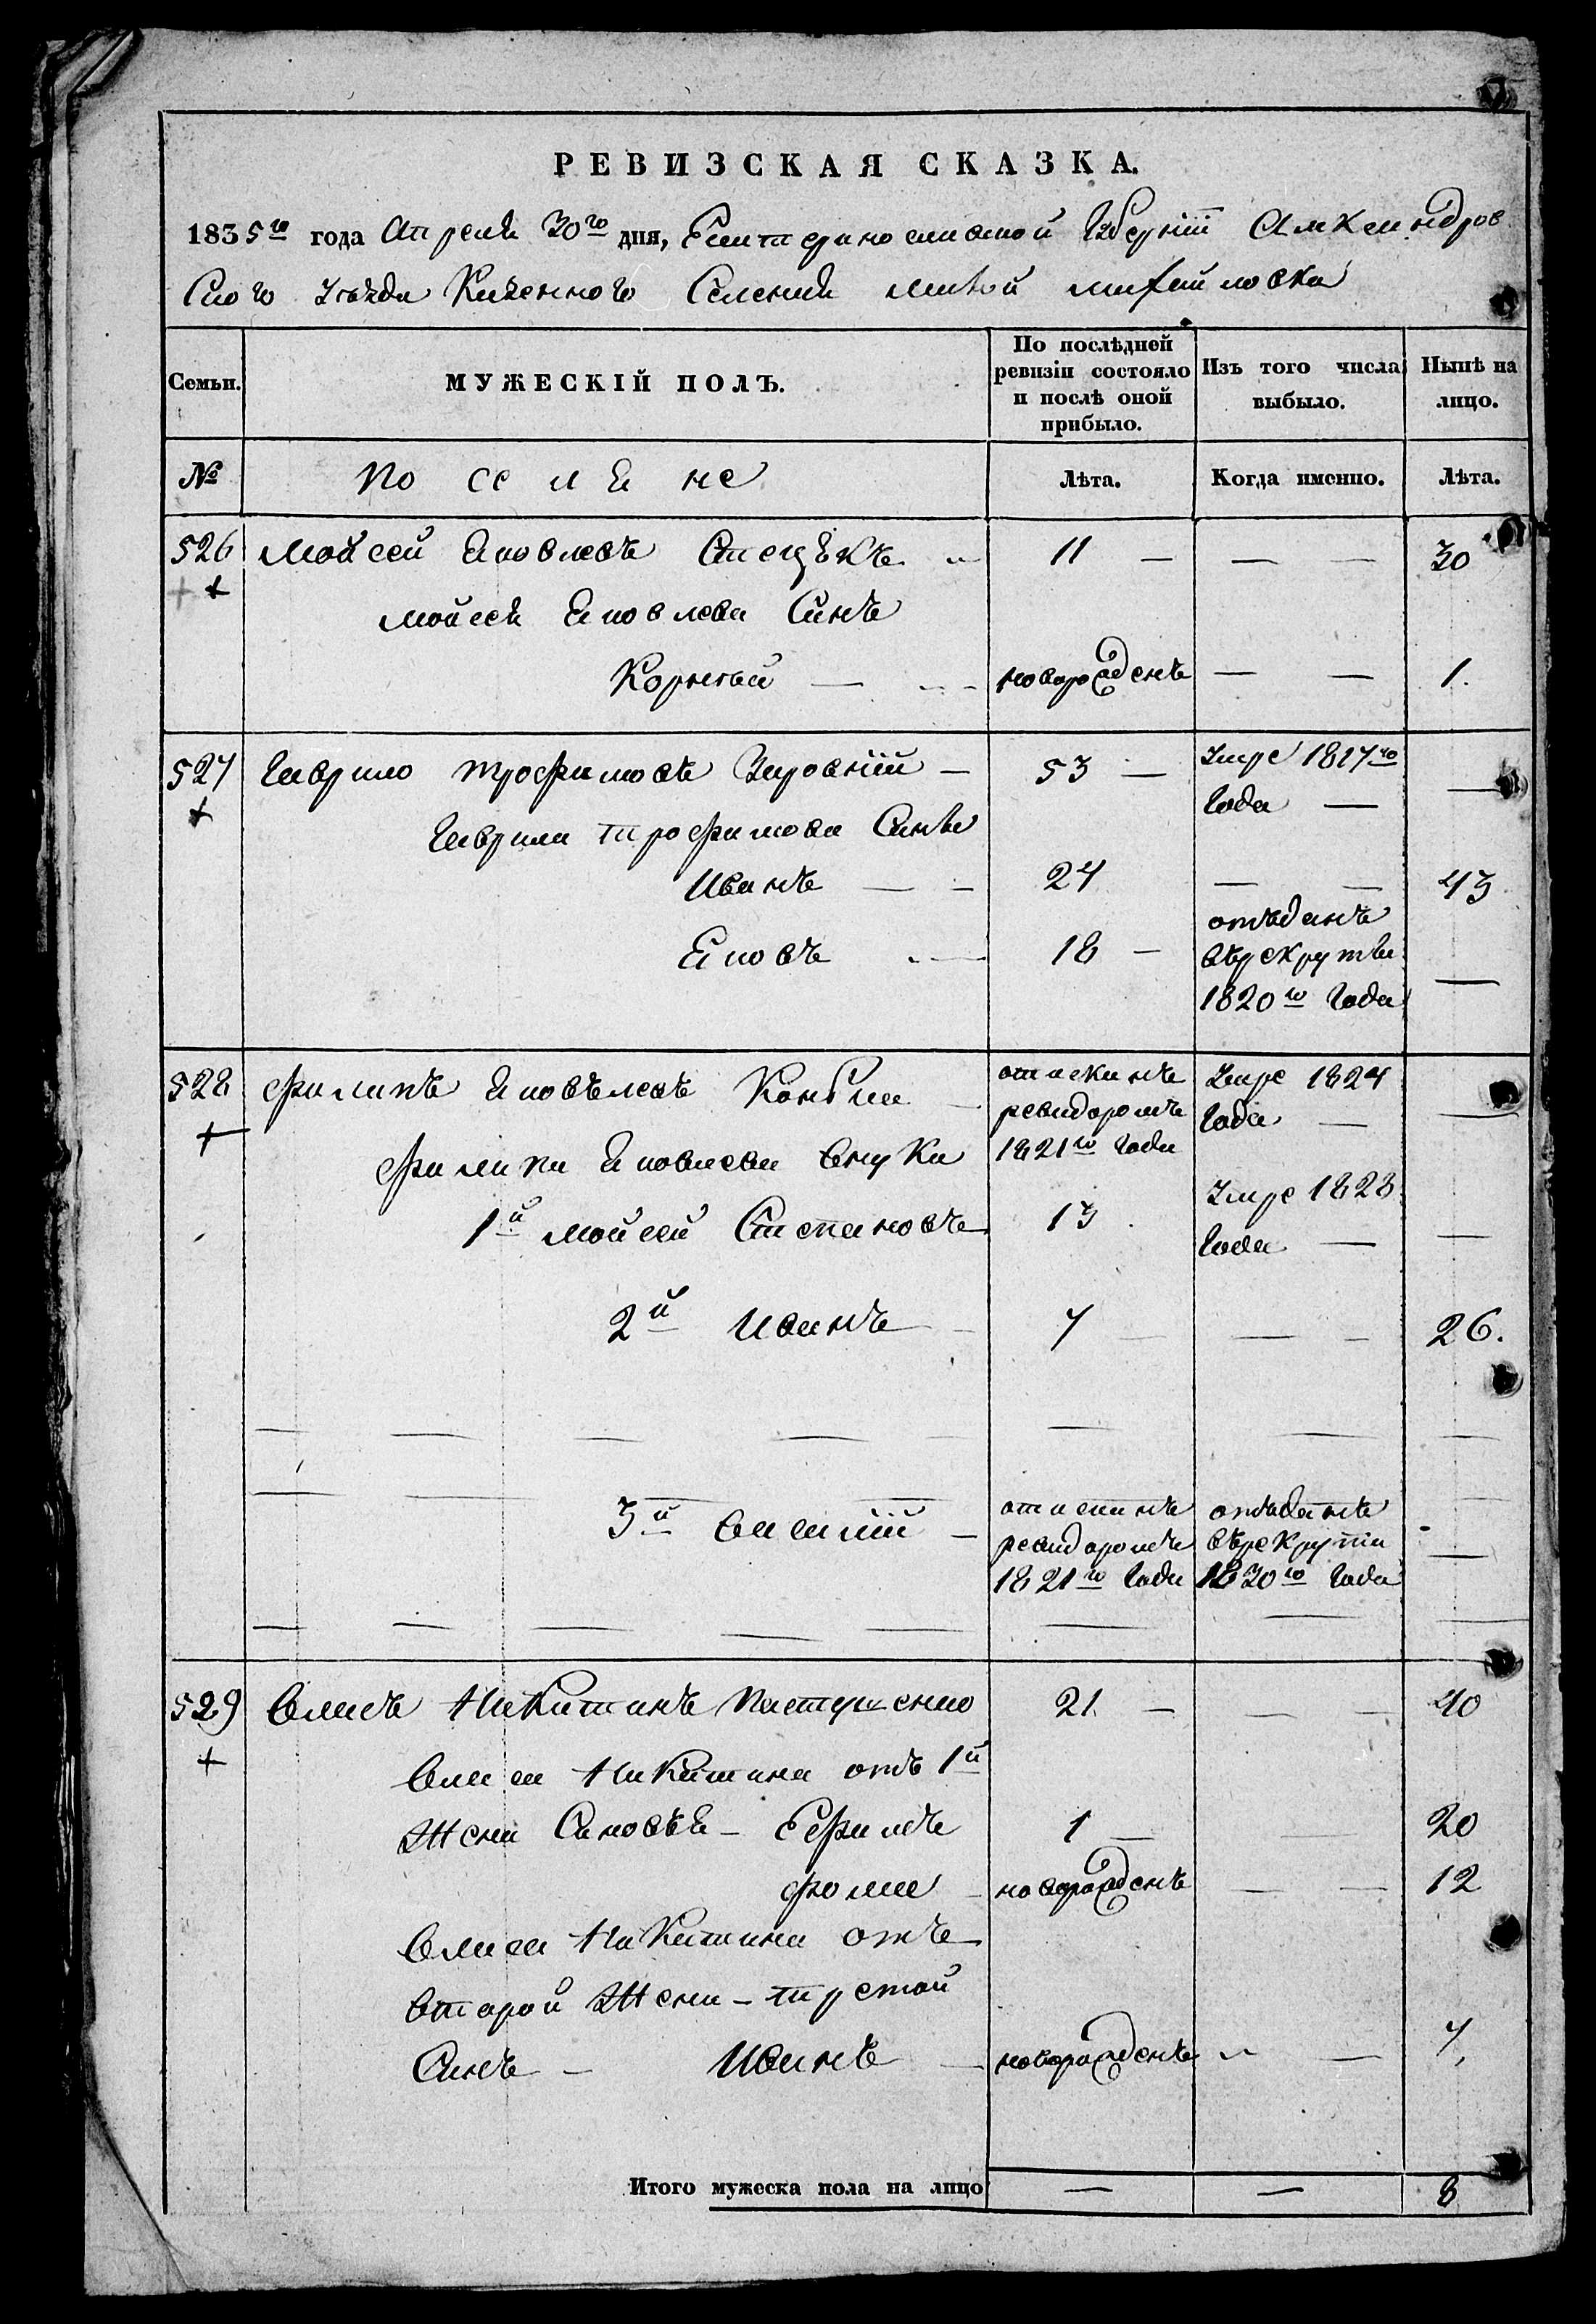 РЕВИЗСКАЯ СКАЗКА.
1835го года Апреля 30го дня, Екатеринославской Губернии Александров
Ского Уезда Казенного Селения Михайловка
Семьи.
МУЖЕСКІЙ ПОЛЪ.
По послѣдней ревизіи состояло и послѣ оной прибыло.
Изъ того числа выбыло.
Нынѣ на лицо.
№
Поселяне
Лѣта.
Когда именно.
Лѣта.
526 Мойсей Яковлевъ 11 — — — 30
Мойсея Яковлева Синъ
Корней — новорожденъ — — 1.
527 Гаврило Трофимовъ — 53 — Умре 1817го Года — —
Гаврила Трофимова Сини
Иванъ — — 24 — — 43
Яковъ 18 — отъданъ въ рекрути 1820го Года —
528 Филипъ Яковълевъ отискинъ ревидоромъ 1821го Года Умре 1824 Года — —
Филипа Яковлева внуки
1й Мойсей Степановъ 13 Умре 1828 Года — —
2й Иванъ 7 — — — 26.
3й Василий — отискинъ ревидоромъ 1821го Года отъданъ въ рекрути 1830го Года —
529 Власъ Никитинъ Пастушенко 21 — — — 40
Власа Никитина отъ 1й
Жени Синовья — Ефимъ 1 — — 20
Фома — новорожденъ — — 12
Власа Никитина отъ
второй Жени — третой
Синъ — Иванъ — новорожденъ — 7.
Итого мужеска пола на лицо — — 8